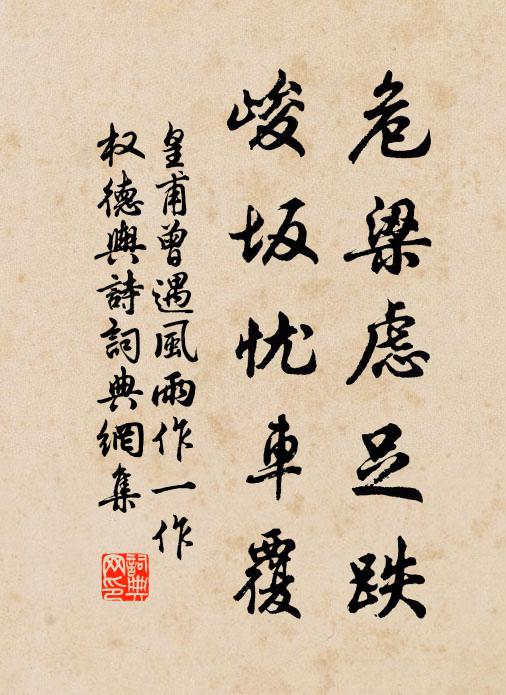 危梁虑足跌
峻坂忧車覆
皇甫曾遇風雨作一作
权德輿詩詞典網集
詞典網印